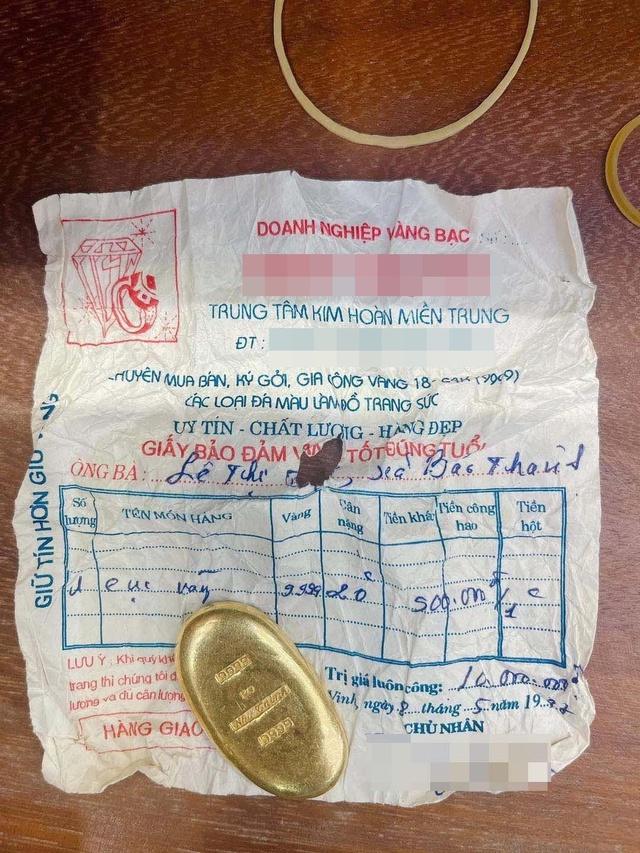 DOANH NGHIỆP VÀNG BẠC
TRUNG TÂM KIM HOÀN MIỀN TRUNG
ĐT :
CHUYÊN MUA BÁN, KÝ GỞI, GIA CÔNG VÀNG 18
CÁC LOẠI ĐÁ MÀU LÀM ĐỒ TRANG SỨC
UY TÍN - CHẤT LƯỢNG - HÀNG ĐẸP
GIẤY BẢO ĐẢM TỐT ĐÚNG TUỔI
ÔNG BÀ : Lê Thị
GIỮ TÍN HƠN GIỮ
Số lượng TÊN MÓN HÀNG Vàng Cân nặng Tiền khấu Tiền công hao Tiền hột
1 cục vàng 9.999 500.000
LƯU Ý : Khi quý
trang thì chúng tôi
lượng và đủ cân lượng
HÀNG GIAO
Trị giá luôn công: 10.000.000
Vinh, ngày 8 tháng 5 năm 19
CHỦ NHÂN
9999
9999